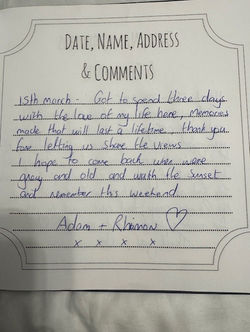 DATE, NAME, ADDRESS
& COMMENTS
15th march - Got to spend three days
with the love of my life here, Memories
made that will last a lifetime, thank you
for letting us share the views
I hope to come back when were
grey and old and wath the sunset
and remember this weekend
Adam + Rhiannon
x x x x